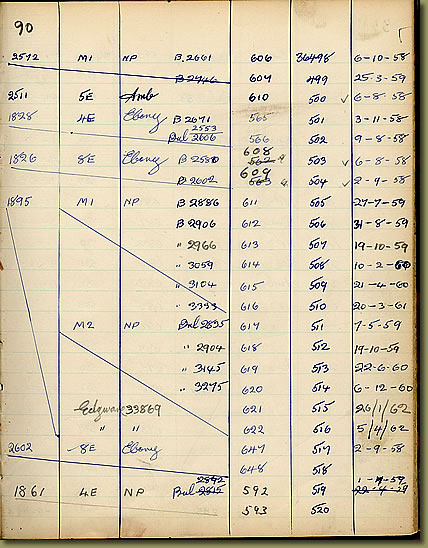 90
2572 M1 NP B.2661 606 36498 6-10-58
B 2746 607 499 25-3-59
2511 5E Amb 610 500 ✓ 6-8-58
1828 4E Ebony B 2671 565 501 3-11-58
2553
Bul 2606 566 502 9-8-58
608
1826 8E Ebony B 2580 562 503 ✓ 6-8-58
609
B 2602 563 504 ✓ 2-9-58
1895 M1 NP B 2886 611 505 27-7-59
B 2906 612 506 31-8-59
" 2966 613 507 19-10-59
" 3059 614 508 10-2-60
" 3104 615 509 21-4-60
" 3353 616 510 20-3-61
M2 NP Bul 2835 617 511 7-5-59
" 2904 618 512 19-10-59
" 3145 619 513 22-6-60
" 3275 620 514 6-12-60
Edgware 33869 621 515 26/1/62
" " 622 516 5/4/62
2602 8E Ebony 647 517 2-9-58
648 518
1861 4E NP Bul 592 519
593 520